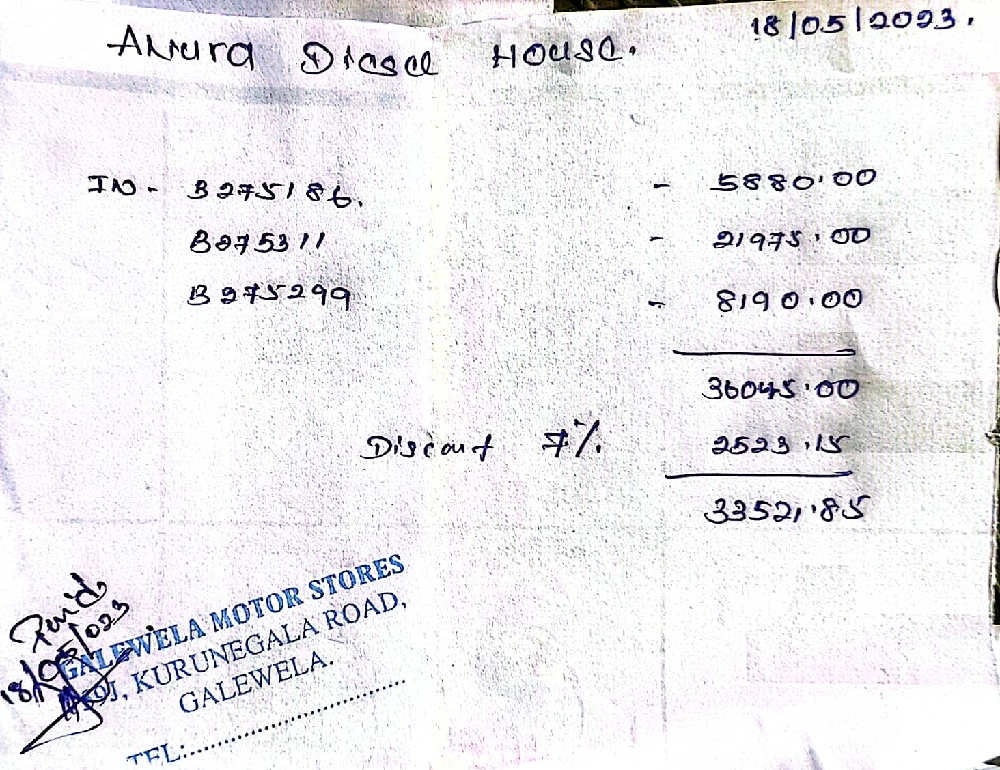 18/05/2023.
Anura Diesel House.
IN - B275186. - 5880.00
B275311 - 21975.00
B275299 - 8190.00
36045.00
Discount 7% 2523.15
33521.85
Paid
18/05/2023
GALEWELA MOTOR STORES
KURUNEGALA ROAD,
GALEWELA.
TEL:..............................